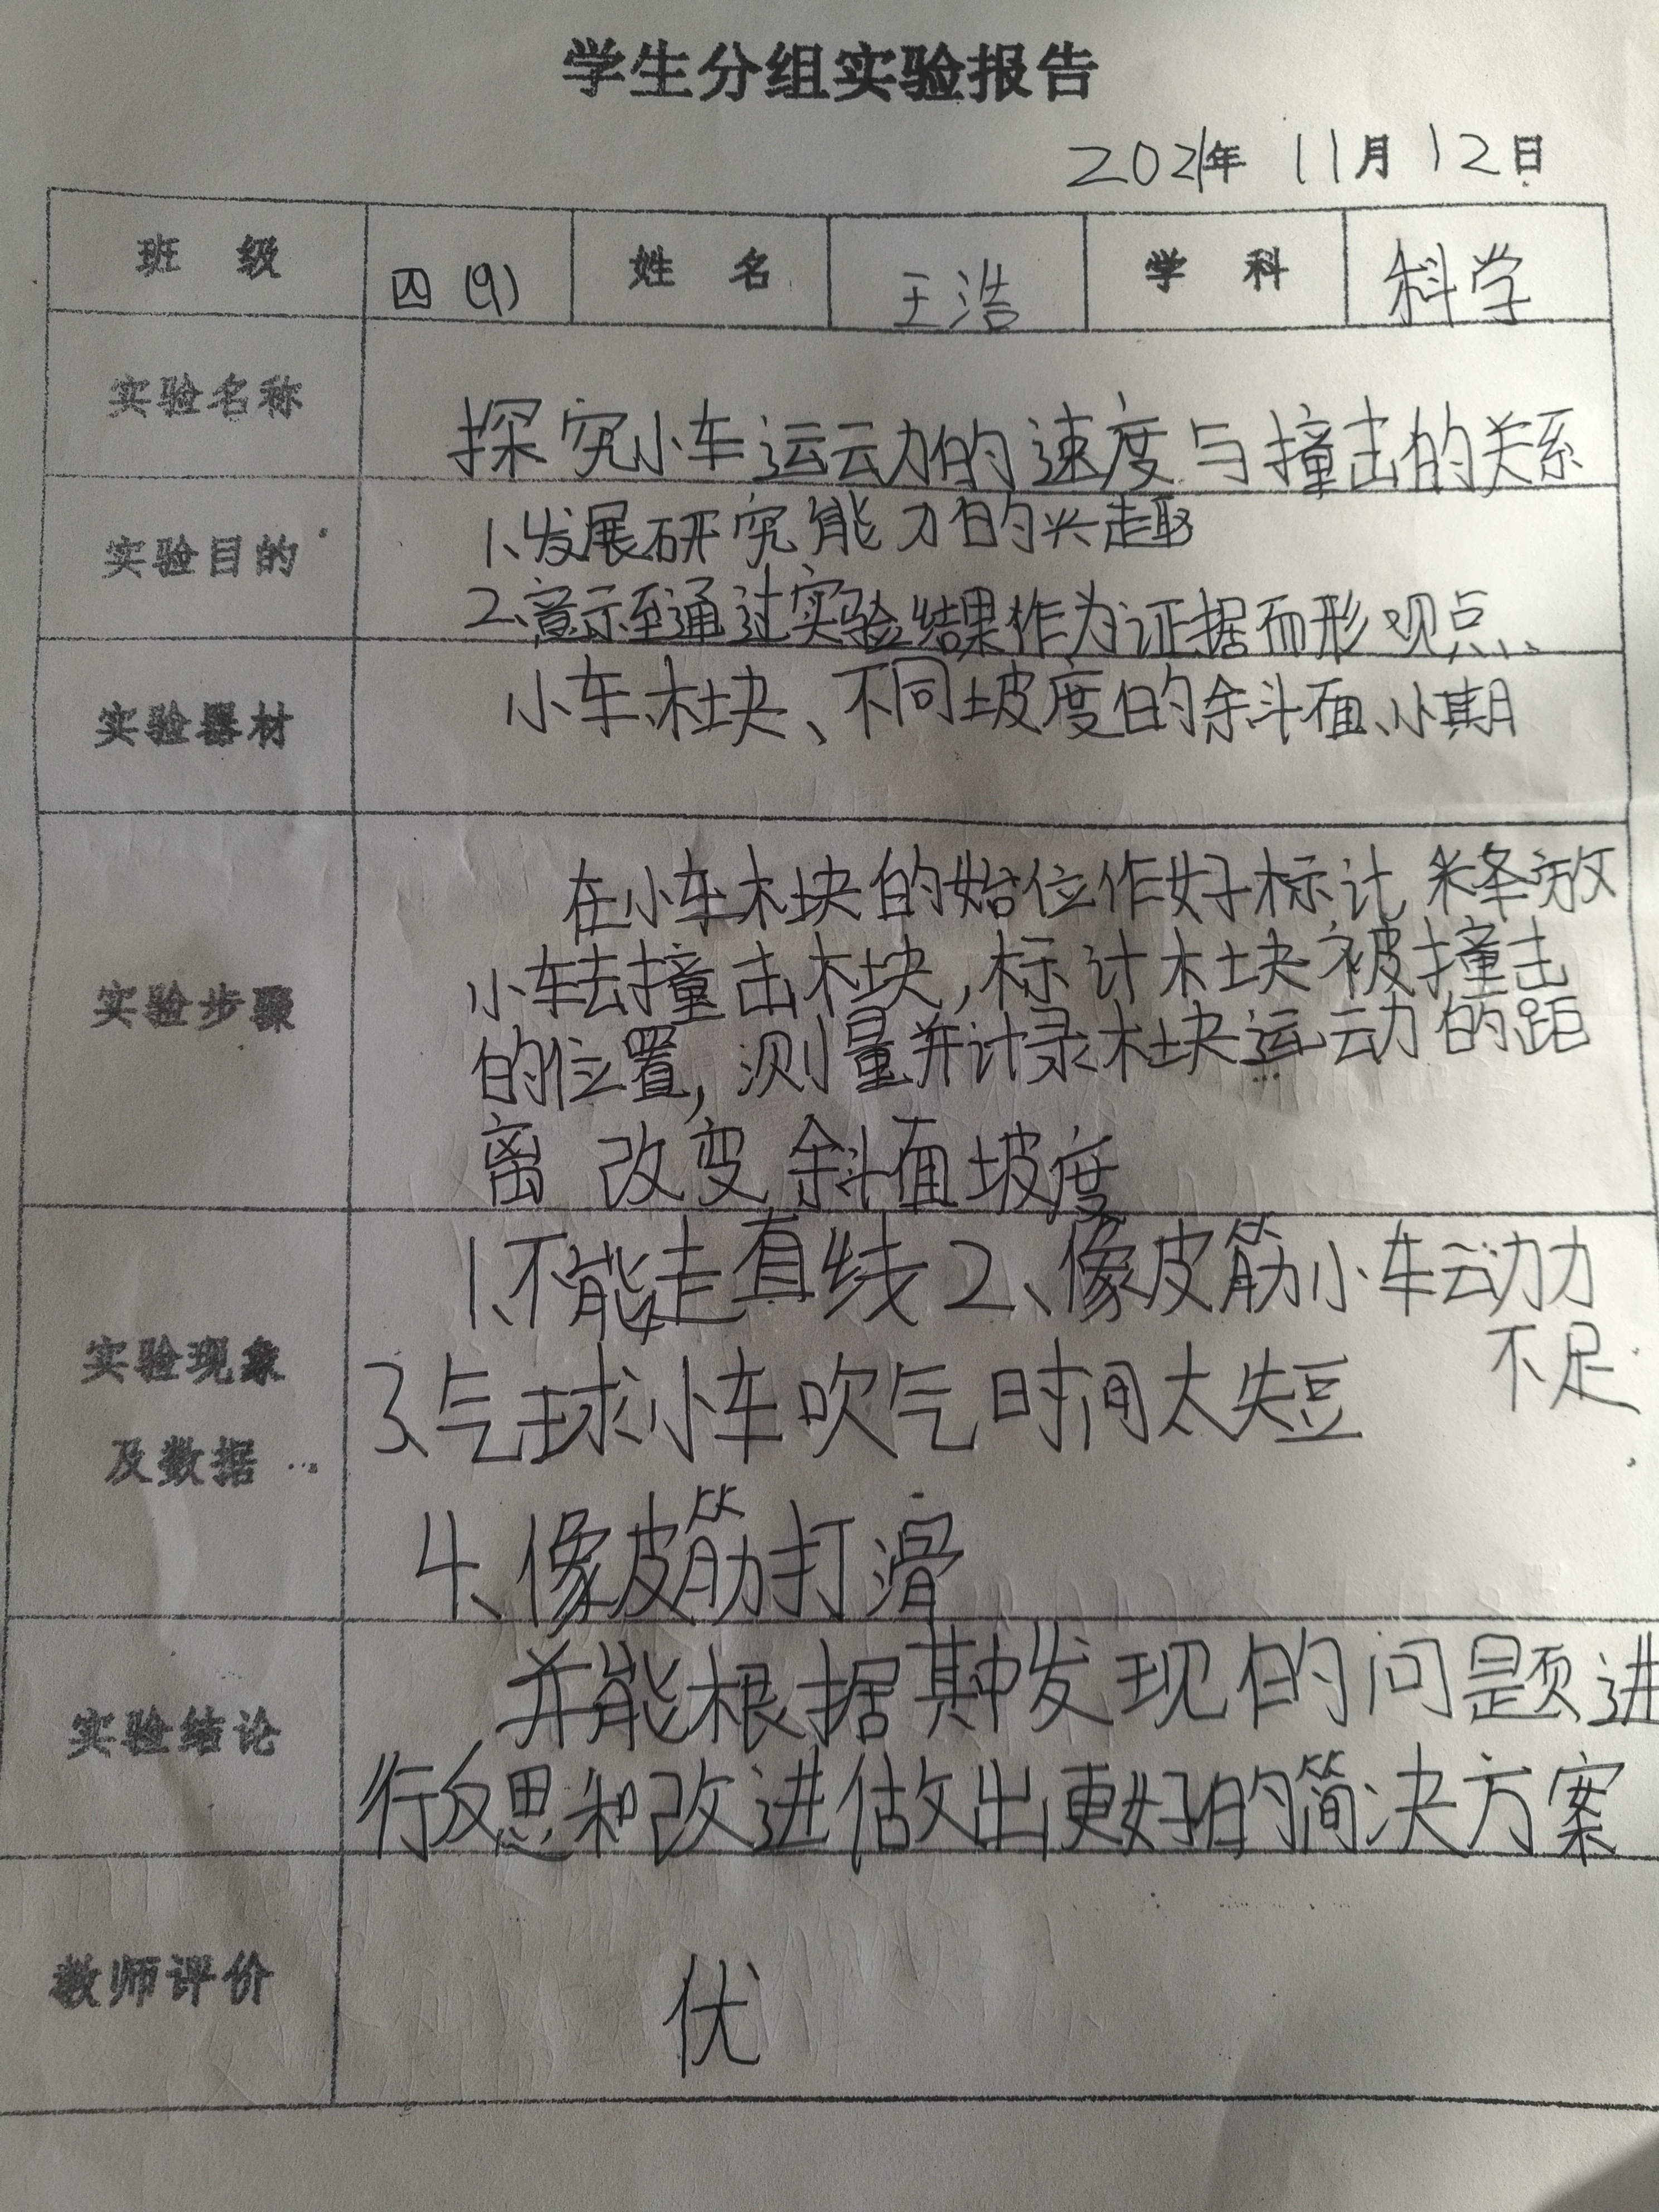 学生分组实验报告
2021年 11月 12日
班 级 四(9) 姓 名 王浩 学 科 科学
实验名称 探究小车运动力的速度与撞击的关系
实验目的 1、发展研究能力的兴趣
2、意示至通过实验结果作为证据而形观点、
实验器材 小车、木块、不同坡度的斜面、小期
在小车木块的始位作好标计 释放
小车去撞击木块,标计木块被撞击
实验步骤
的位置,测量并计录木块运动的距
离 改变斜面坡度
1、不能走直线 2、像皮筋小车动力
不足
实验现象 3、气球小车吹气时间太短
及数据
4、像皮筋打滑
并能根据期中发现的问题进
实验结论
行反思和改进做出更好的简决方案
教师评价 优